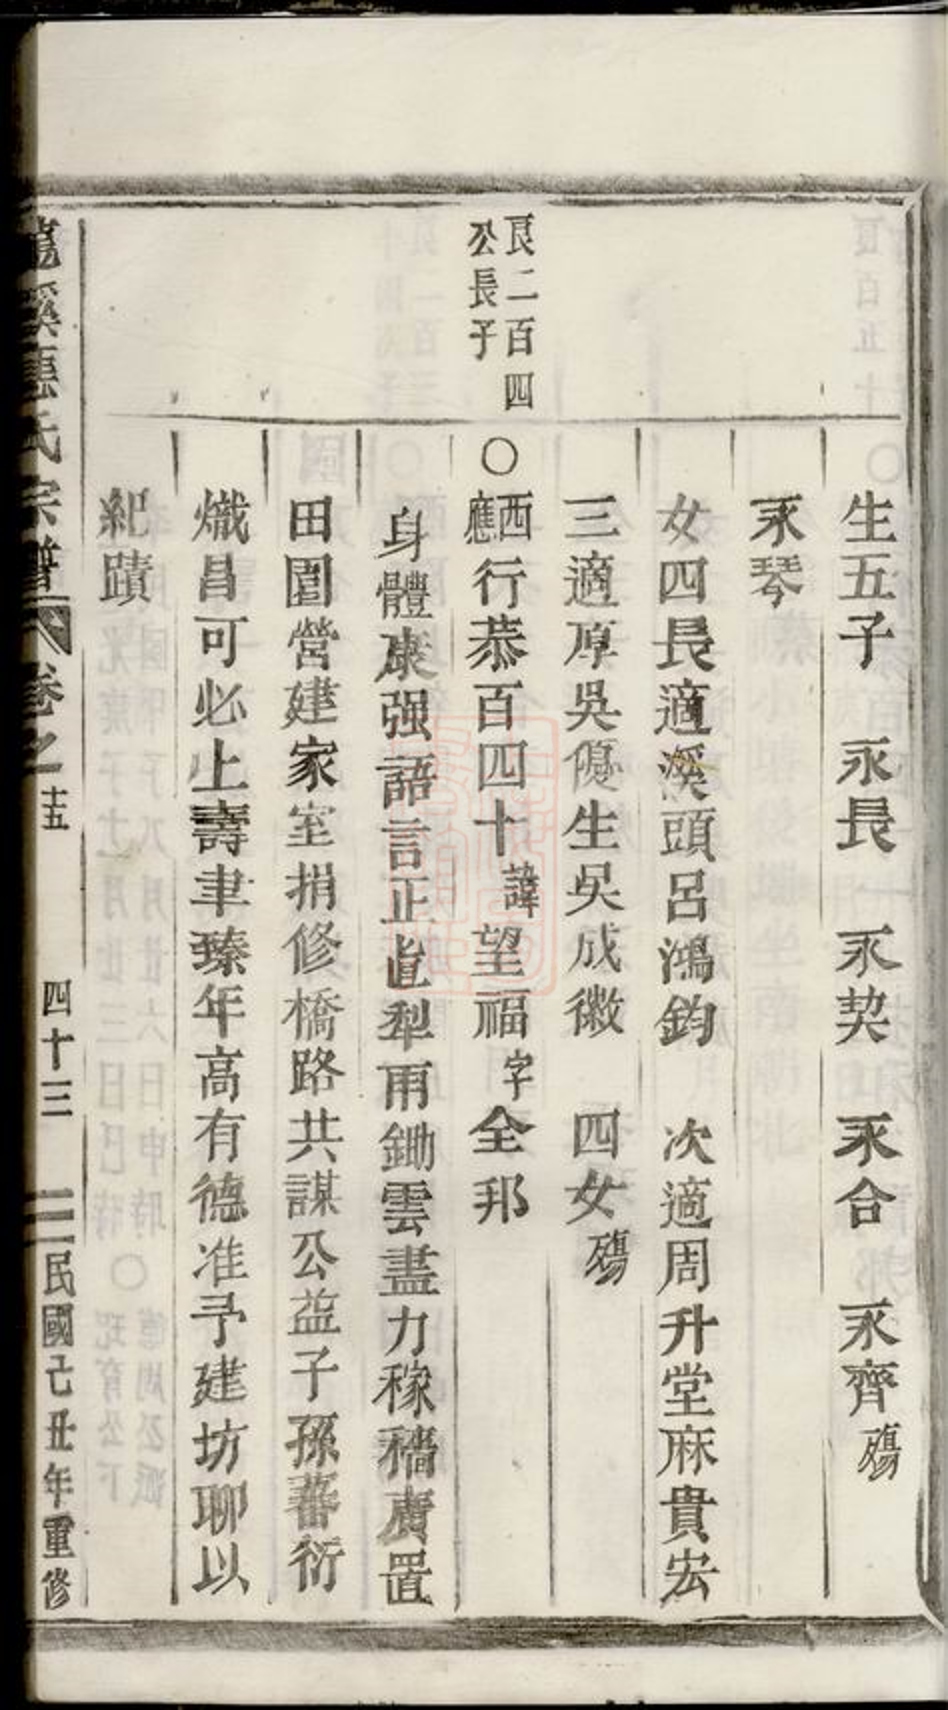 生五子 永長 永契 永合 永齊 殤
永琴
女四長適溪頭呂鴻鈞 次適周升堂麻貴宏
三適厚吳優生吳成徽 四女殤
良二百四
公長子
○西應行恭百四十諱望福字全邦
身體康强語言正直犁雨鋤雲盡力稼穡廣置
田園營建家室捐修橋路共謀公益子孫蕃衍
熾昌可必上壽聿臻年高有德准予建坊聊以
紀蹟
溪應氏宗譜 卷之十五 四十三 民國己丑年重修